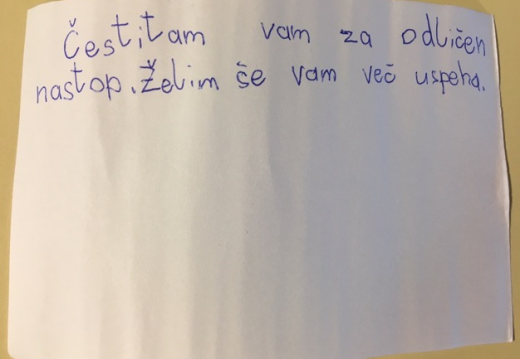 Čestitam vam za odličen
nastop. Želim še vam več uspeha.